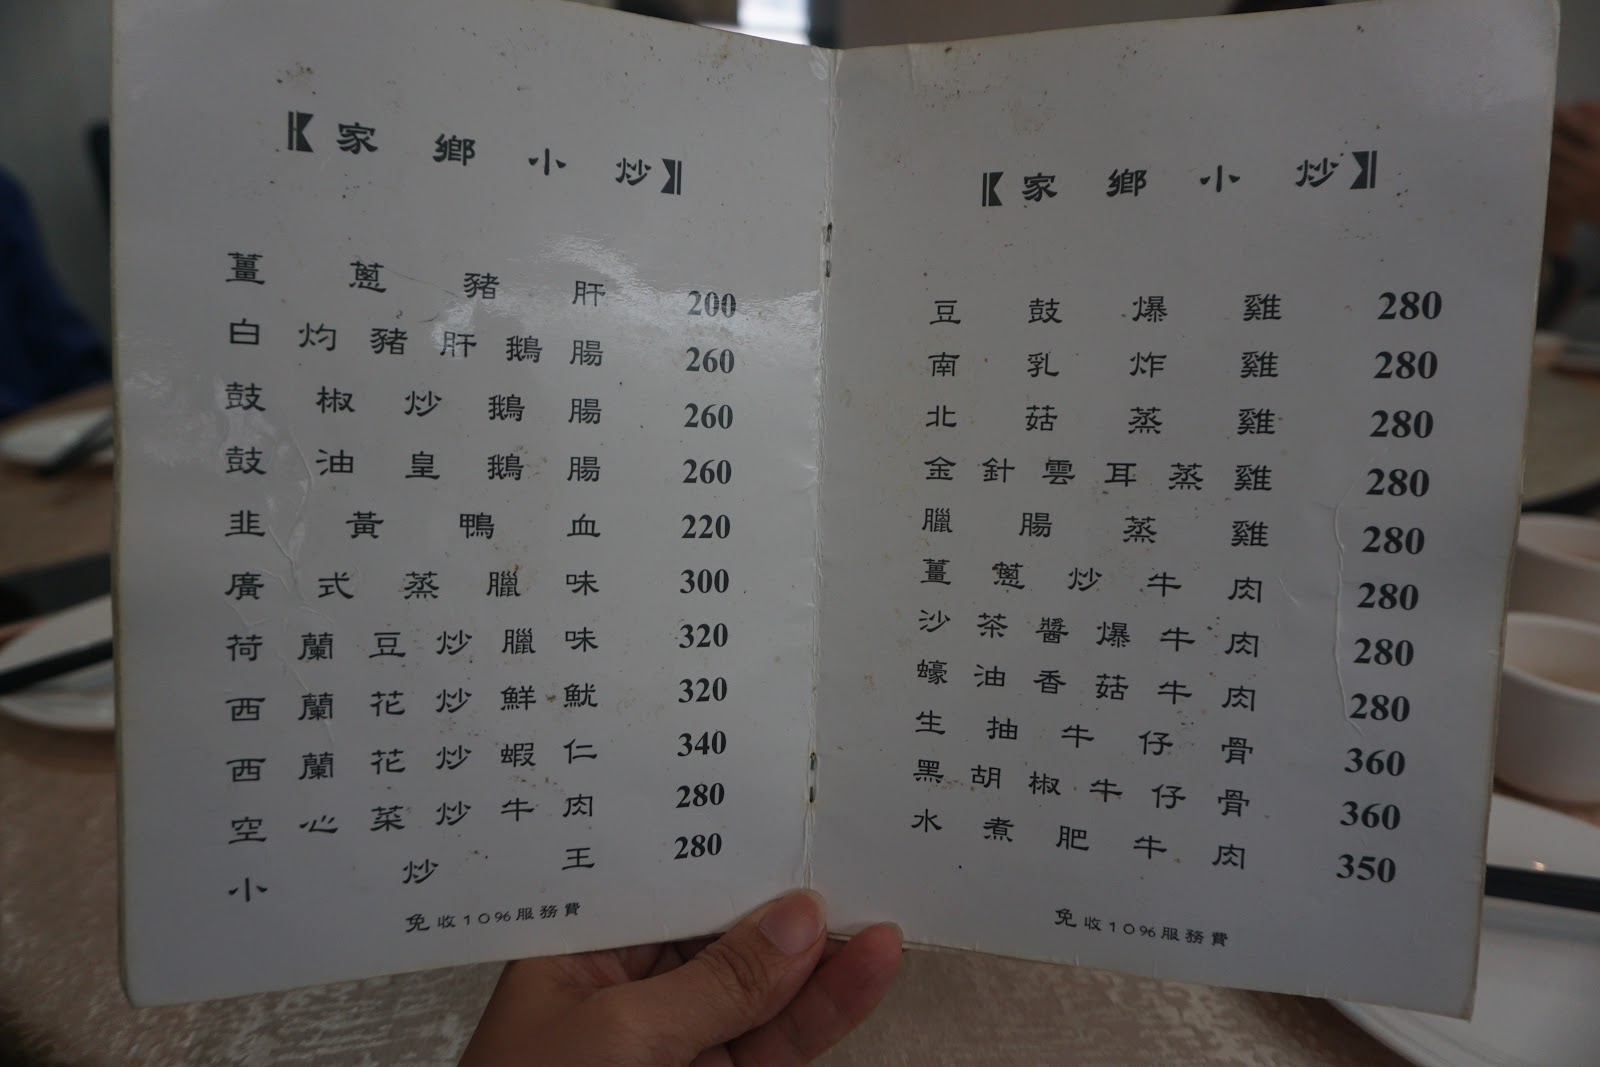 【家鄉小炒】
薑蔥豬肝 200
白灼豬肝鵝腸 260
鼓椒炒鵝腸 260
鼓油皇鵝腸 260
韭黃鴨血 220
廣式蒸臘味 300
荷蘭豆炒臘味 320
西蘭花炒鮮魷 320
西蘭花炒蝦仁 340
空心菜炒牛肉 280
小炒王 280
免收10%服務費
【家鄉小炒】
豆鼓爆雞 280
南乳炸雞 280
北菇蒸雞 280
金針雲耳蒸雞 280
臘腸蒸雞 280
薑蔥炒牛肉 280
沙茶醬爆牛肉 280
蠔油香菇牛肉 280
生抽牛仔骨 360
黑胡椒牛仔骨 360
水煮肥牛肉 350
免收10%服務費